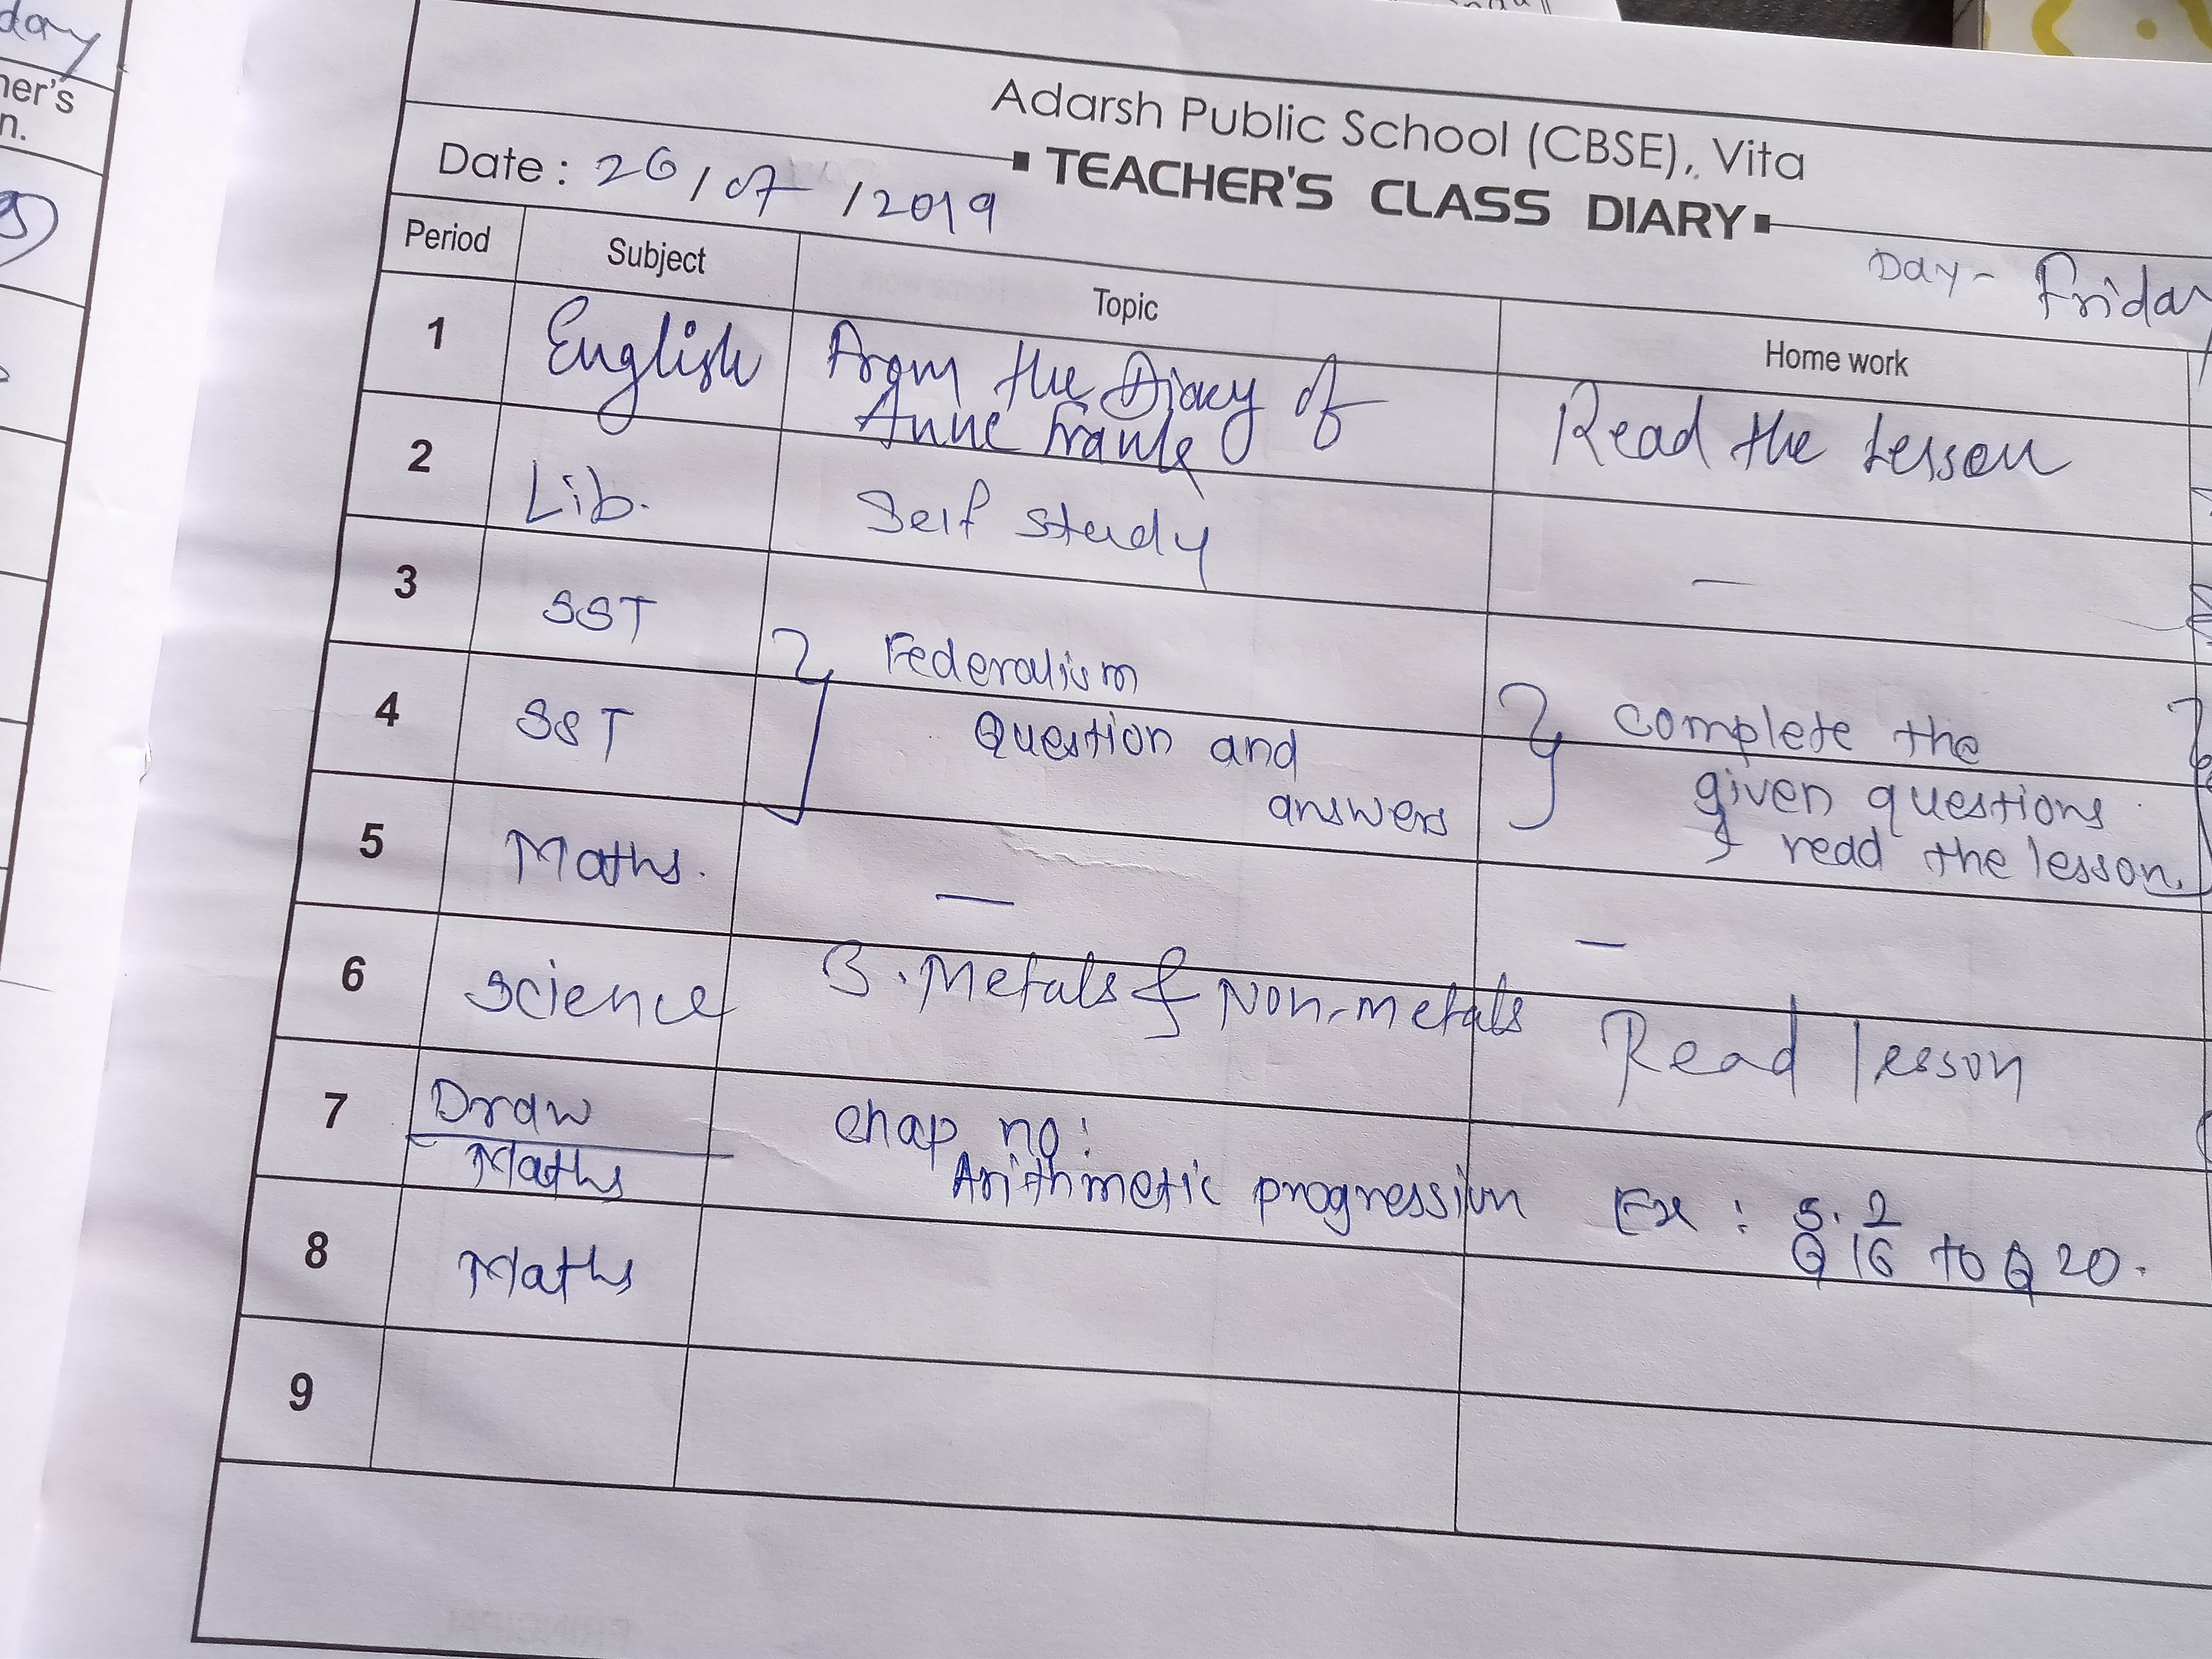 day
ner's
n.
Adarsh Public School (CBSE), Vita
TEACHER'S CLASS DIARY
Date : 26 / 07 / 2019
Day - Friday
Period Subject Topic Home work
1 English From the Diary of
Anne Frank
Read the Lesson
2 Lib. Self study —
3 SST } Federalism
4 SST Question and
answers
} complete the
given questions
& read the lesson.
5 Maths. — —
6 Science 3. Metals & Non-metals Read lesson
7 Draw
Maths
chap no:
Arithmetic progression
Ex : 5.2
Q 16 to Q 20.
8 Maths
9